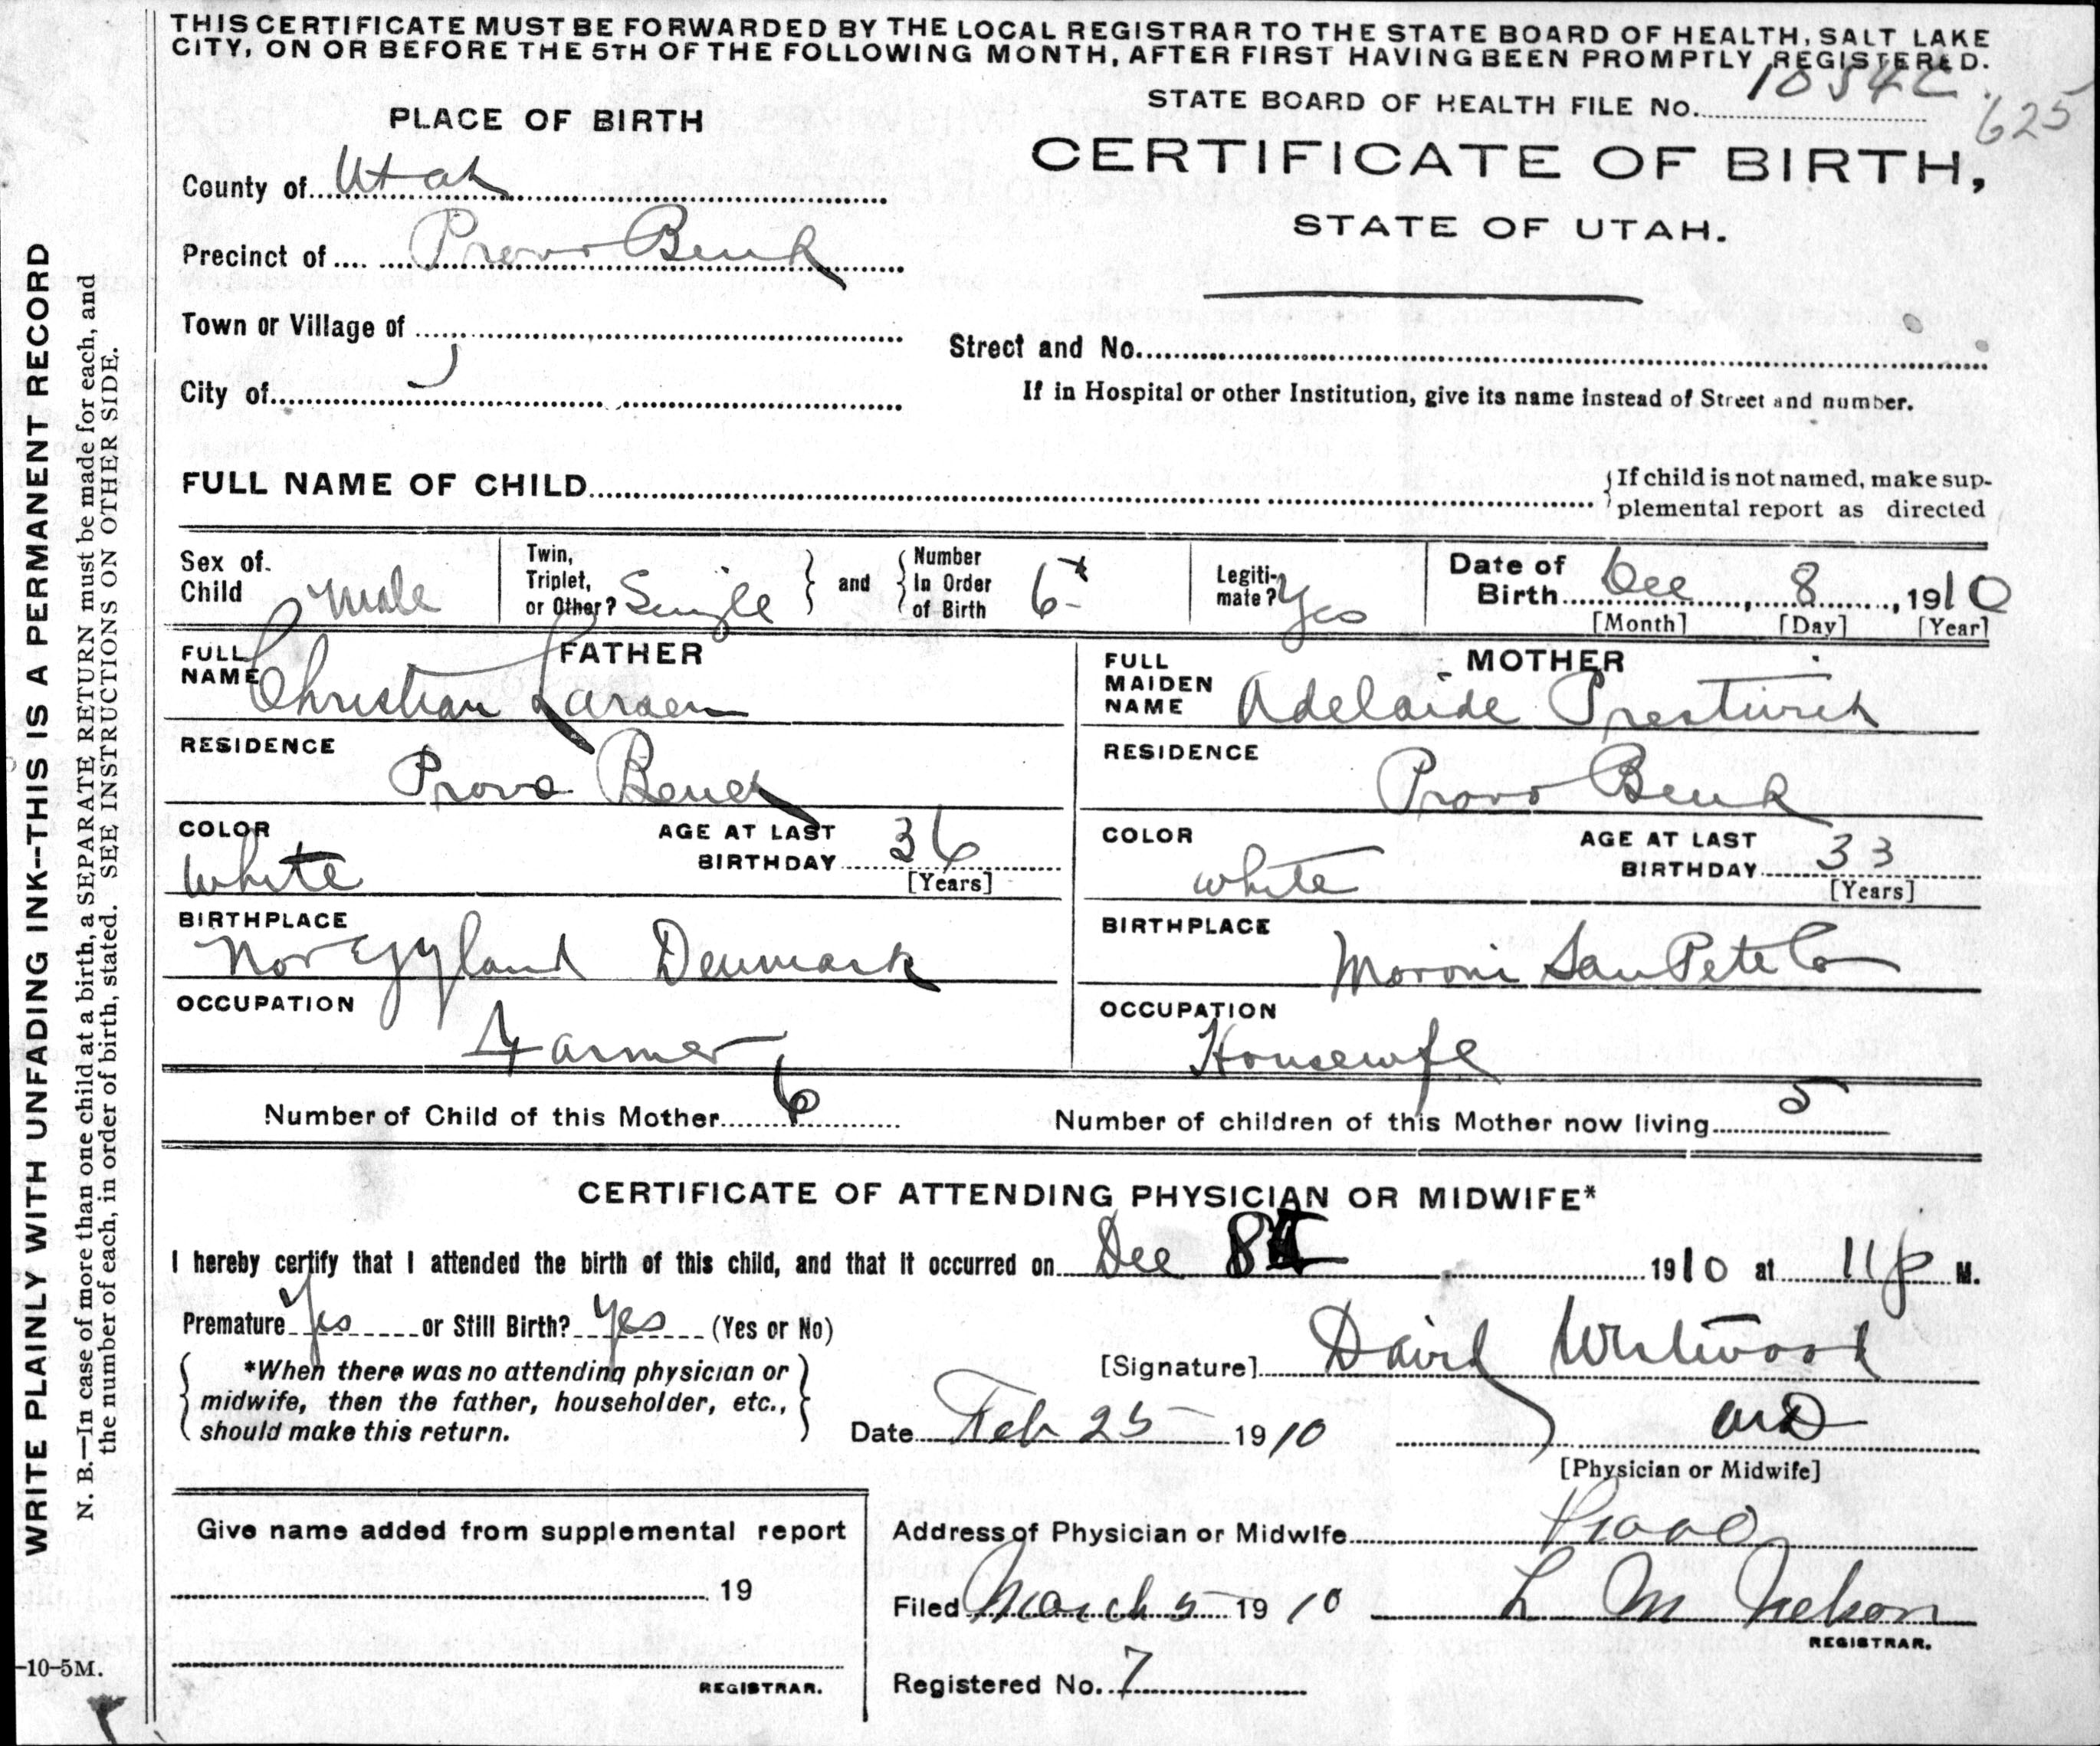 THIS CERTIFICATE MUST BE FORWARDED BY THE LOCAL REGISTRAR TO THE STATE BOARD OF HEALTH, SALT LAKE
CITY, ON OR BEFORE THE 5TH OF THE FOLLOWING MONTH, AFTER FIRST HAVING BEEN PROMPTLY REGISTERED.
PLACE OF BIRTH
STATE BOARD OF HEALTH FILE No.
625
CERTIFICATE OF BIRTH,
STATE OF UTAH.
County of Utah
Precinct of Provo Bench
Town or Village of
Street and No.
City of
If in Hospital or other Institution, give its name instead of Street and number.
FULL NAME OF CHILD
{If child is not named, make sup-
plemental report as directed
Sex of Child Male
Twin, Triplet, or Other? Single } and { Number In Order of Birth 6
Legiti-mate? Yes
Date of Birth Dec 8, 1910
[Month] [Day] [Year]
FATHER
FULL NAME Christian Larsen
RESIDENCE
Provo Bench
COLOR White
AGE AT LAST BIRTHDAY 36
[Years]
BIRTHPLACE
Denmark
OCCUPATION
Farmer
MOTHER
FULL MAIDEN NAME Adelaide Prestwich
RESIDENCE
Provo Bench
COLOR white
AGE AT LAST BIRTHDAY 33
[Years]
BIRTHPLACE
Moroni San Pete Co
OCCUPATION
Housewife
Number of Child of this Mother 6
Number of children of this Mother now living 5
CERTIFICATE OF ATTENDING PHYSICIAN OR MIDWIFE*
I hereby certify that I attended the birth of this child, and that it occurred on Dec 8 1910 at 11 p M.
Premature Yes or Still Birth? Yes (Yes or No)
*When there was no attending physician or
midwife, then the father, householder, etc.,
should make this return.
[Signature] David Westwood
Date Feb 25 1910
MD
[Physician or Midwife]
Give name added from supplemental report
19
REGISTRAR.
Address of Physician or Midwife Provo
Filed March 5 1910 L M Nelson
REGISTRAR.
Registered No. 7
WRITE PLAINLY WITH UNFADING INK--THIS IS A PERMANENT RECORD
N. B.—In case of more than one child at a birth, a SEPARATE RETURN must be made for each, and
the number of each, in order of birth, stated. SEE INSTRUCTIONS ON OTHER SIDE.
-10-5M.